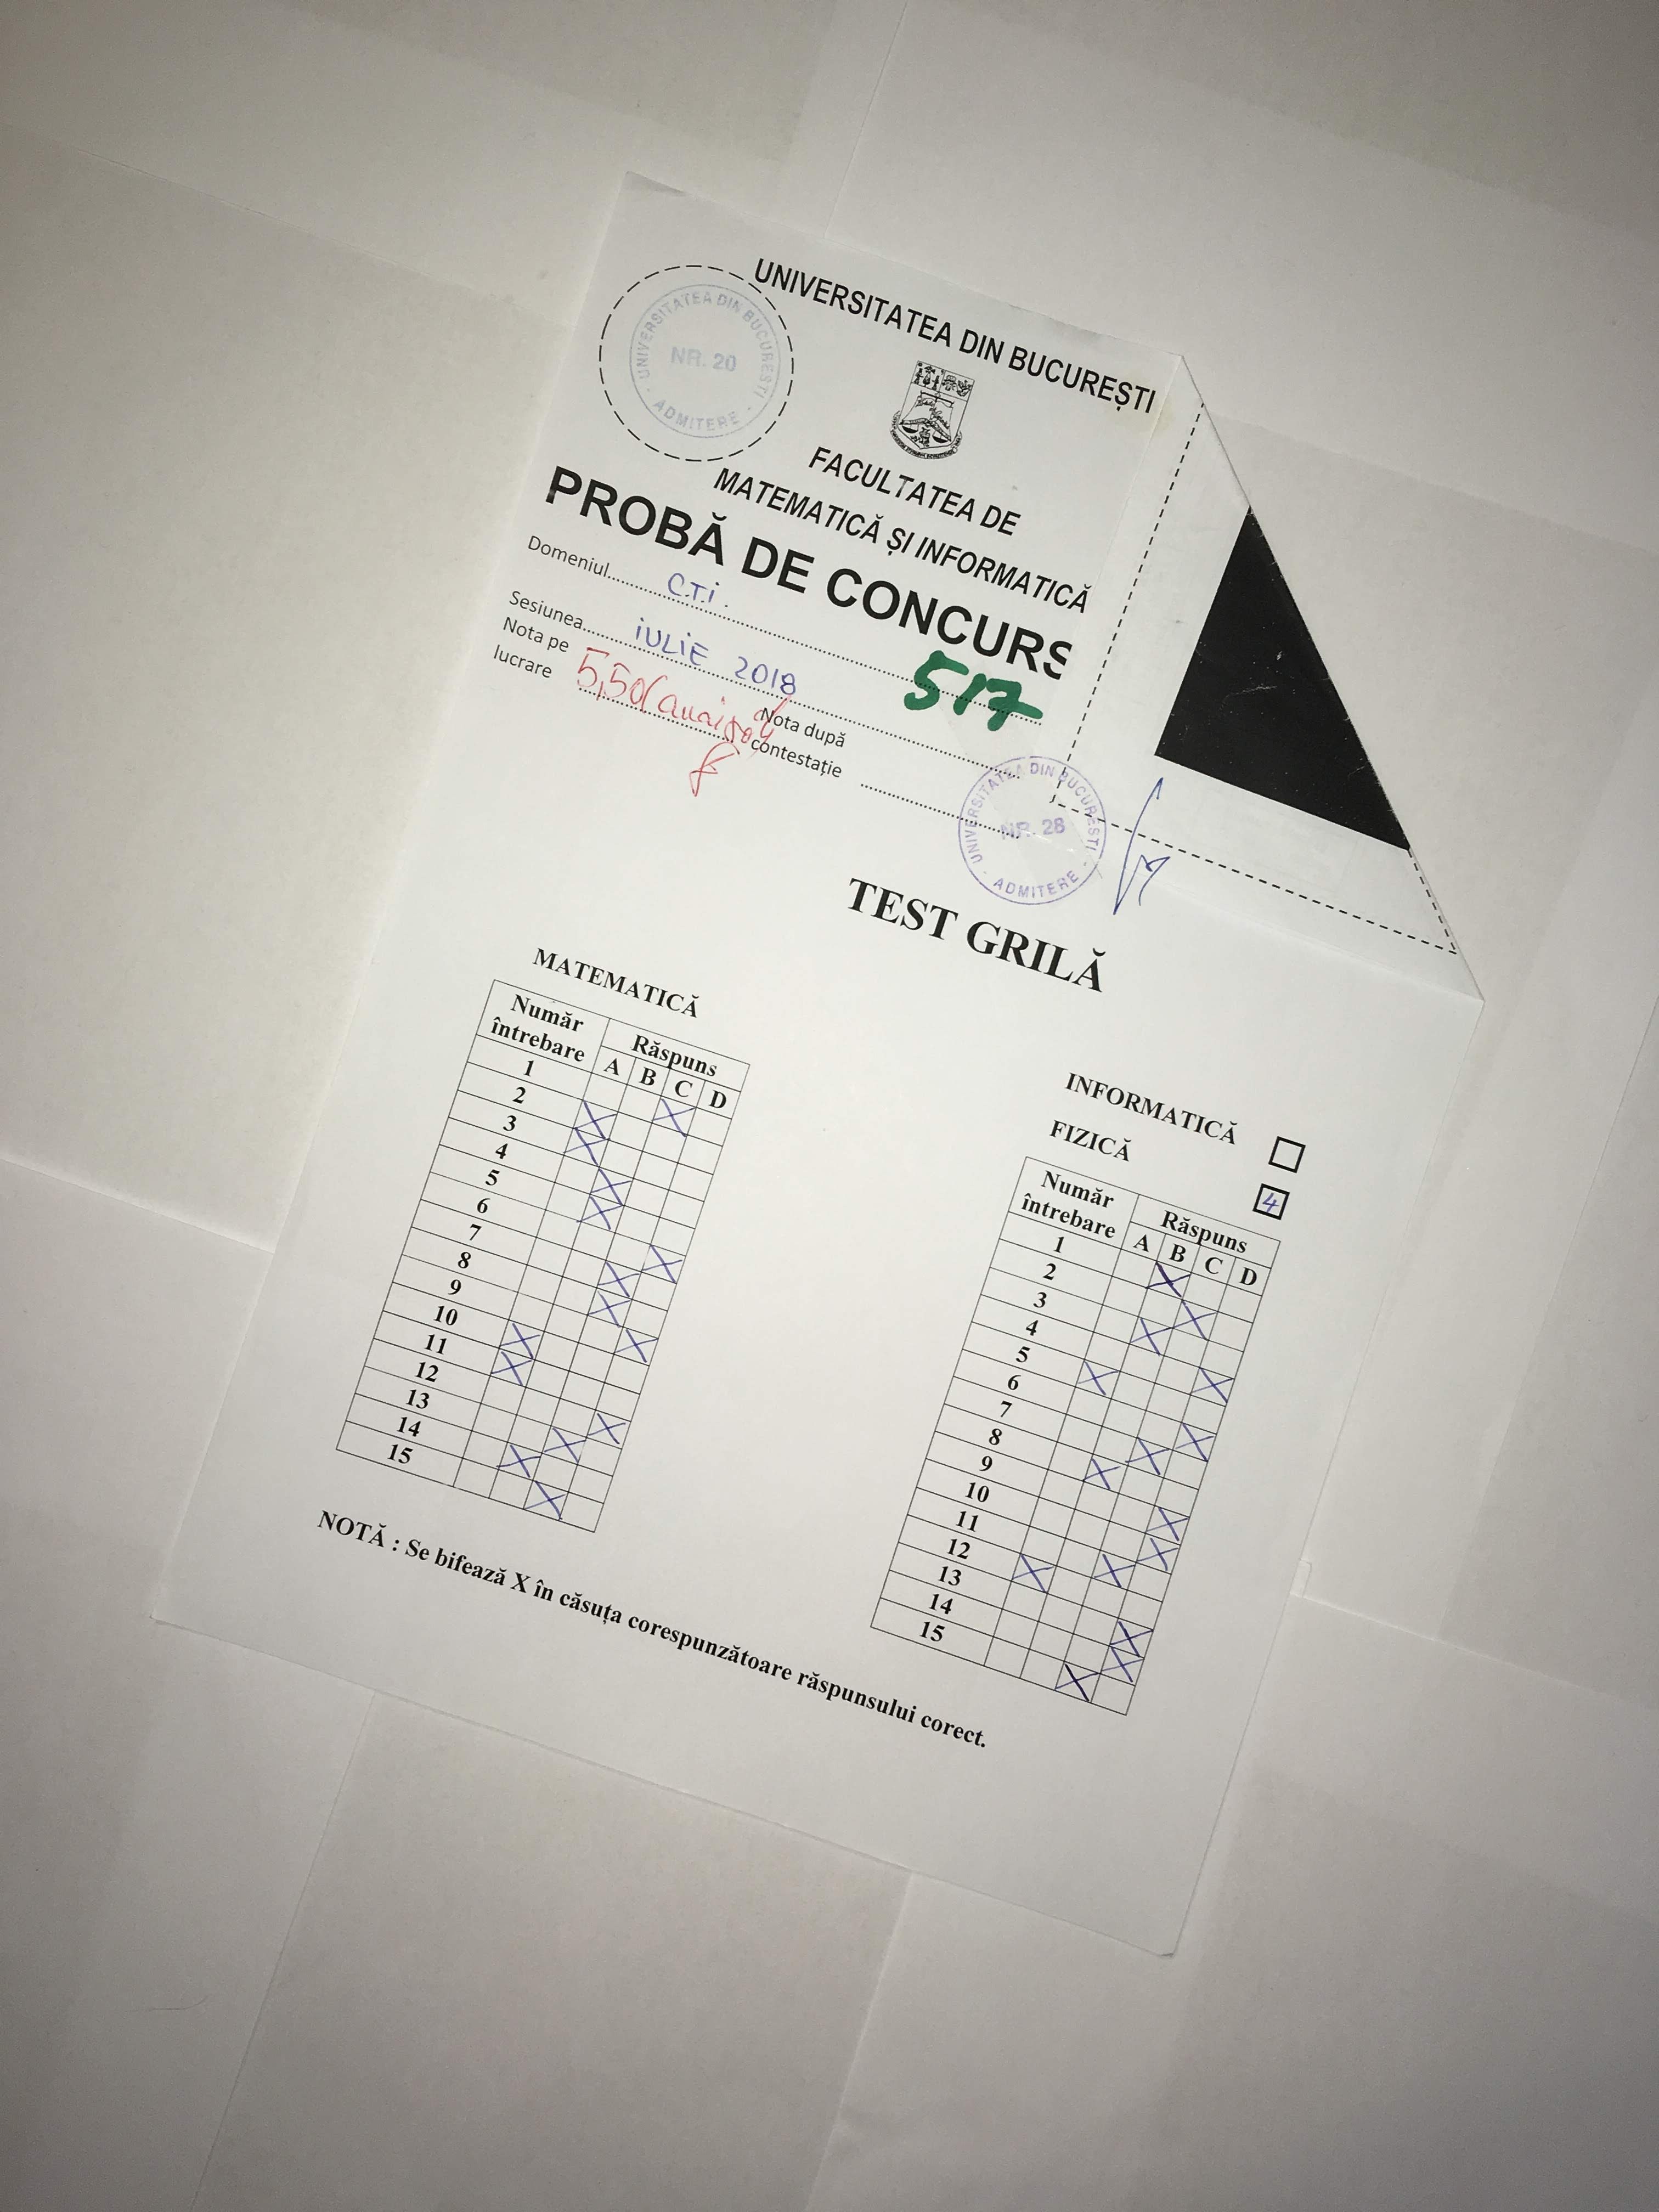 UNIVERSITATEA DIN BUCUREȘTI
UNIVERSITATEA DIN BUCUREȘTI
NR. 20
· ADMITERE ·
FACULTATEA DE
MATEMATICĂ ȘI INFORMATICĂ
PROBĂ DE CONCURS
Domeniul C.T.i.
Sesiunea iULiE 2018
517
Nota pe lucrare 5,50
Nota după contestație
UNIVERSITATEA DIN BUCUREȘTI
NR. 28
· ADMITERE ·
TEST GRILĂ
MATEMATICĂ
Număr întrebare Răspuns
A B C D
1 X
2 X
3 X
4 X
5 X
6 X
7 X
8 X
9 X
10 X
11 X
12 X
13 X
14 X
15 X
INFORMATICĂ
FIZICĂ 4
Număr întrebare Răspuns
A B C D
1 X
2 X
3 X
4 X
5 X
6 X
7 X
8 X
9 X
10 X
11 X
12 X
13 X
14 X
15 X
NOTĂ : Se bifează X în căsuța corespunzătoare răspunsului corect.